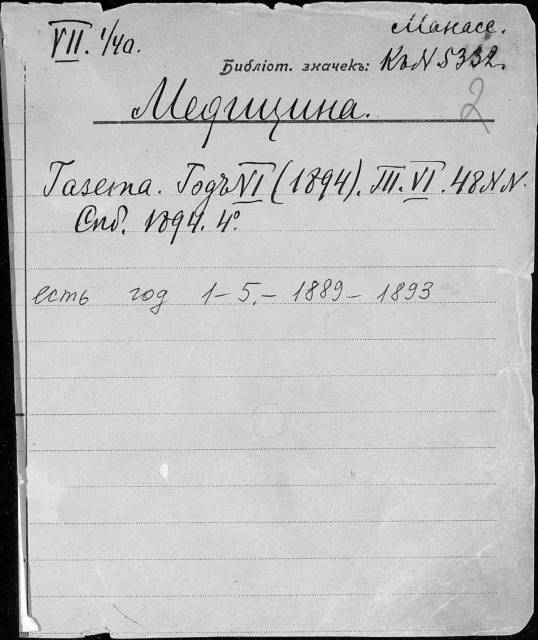 VII. 1/4a.
Манасе.
Библіот. значекъ: Къ N 5332.
Медицина.
2
Газета. Годъ VI (1894). Т. VI. 48 N N.
Спб. 1894. 4°.
есть год 1 – 5. – 1889 – 1893